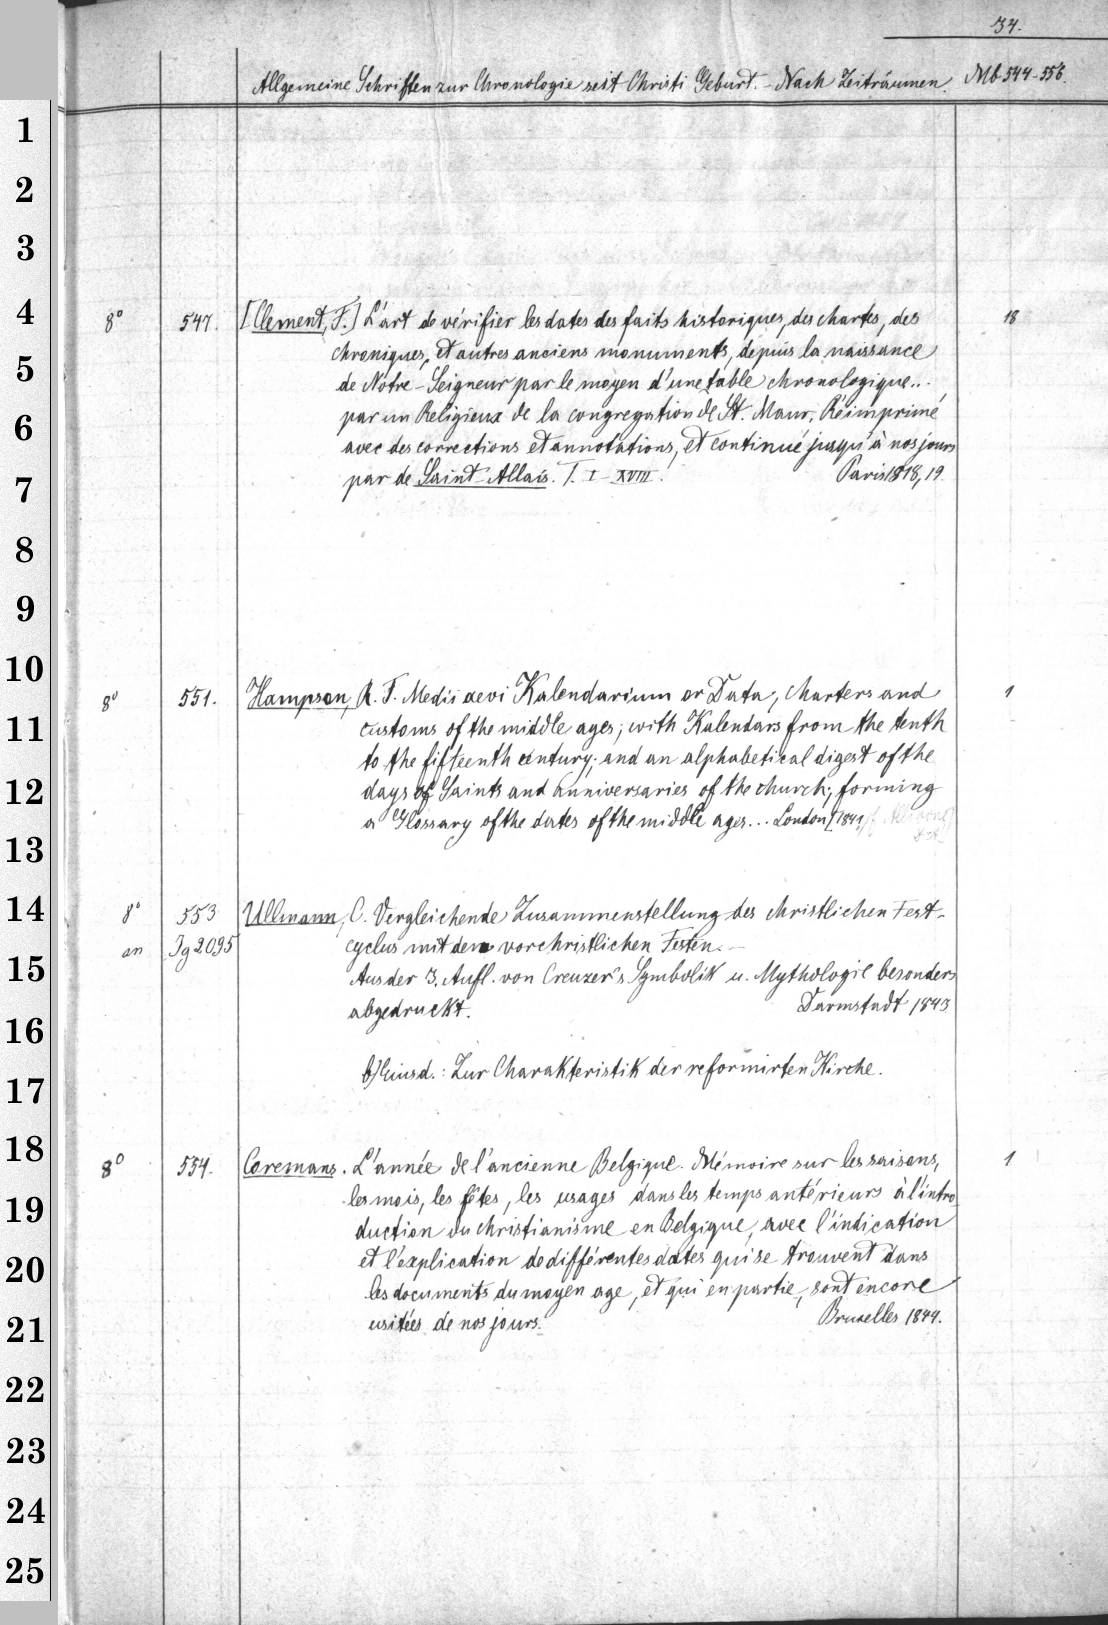 34.
Allgemeine Schriften zur Chronologie seit Christi Geburt. - Nach Zeiträumen. Mb 544-556.
1
2
3
4
8° 547. [Clement, F.] L'art de vérifier les dates des faits historiques, des chartes, des 18
chroniques, et autres anciens monuments, depuis la naissance
5
de Notre-Seigneur par le moyen d'une table chronologique...
par un Religieux de la congregation de St. Maur, Réimprimé
6
avec des corrections et annotations, et continué jusqu'à nos jours
par de Saint-Allais. T. I-XVIII. Paris 1818,19.
7
8
9
10
8° 551. Hampson, R. T. Medii aevi Kalendarium or Data, charters and 1
customs of the middle ages; with Kalendars from the tenth
11
to the fifteenth century; and an alphabetical digest of the
days of Saints and anniversaries of the church; forming
12
a Glossary of the dates of the middle ages... London [1841
13
14
8° 553 Ullmann, C. Vergleichende Zusammenstellung des christlichen Fest-
an Jg 2095 cyclus mit den vorchristlichen Festen. -
15
Aus der 3. Aufl. von Creuzer's Symbolik u. Mythologie besonders
abgedruckt. Darmstadt 1843
16
b) Eiusd.: Zur Charakteristik der reformirten Kirche.
17
18
8° 554. Coremans. L'année de l'ancienne Belgique. Mémoire sur les saisons, 1
les mois, les fêtes, les usages dans les temps antérieurs à l'intro
19
duction du christianisme en Belgique, avec l'indication
et l'explication de différentes dates qui se trouvent dans
20
les documents du moyen age, et qui en partie, sont encore
usitées de nos jours. Bruxelles 1844.
21
22
23
24
25